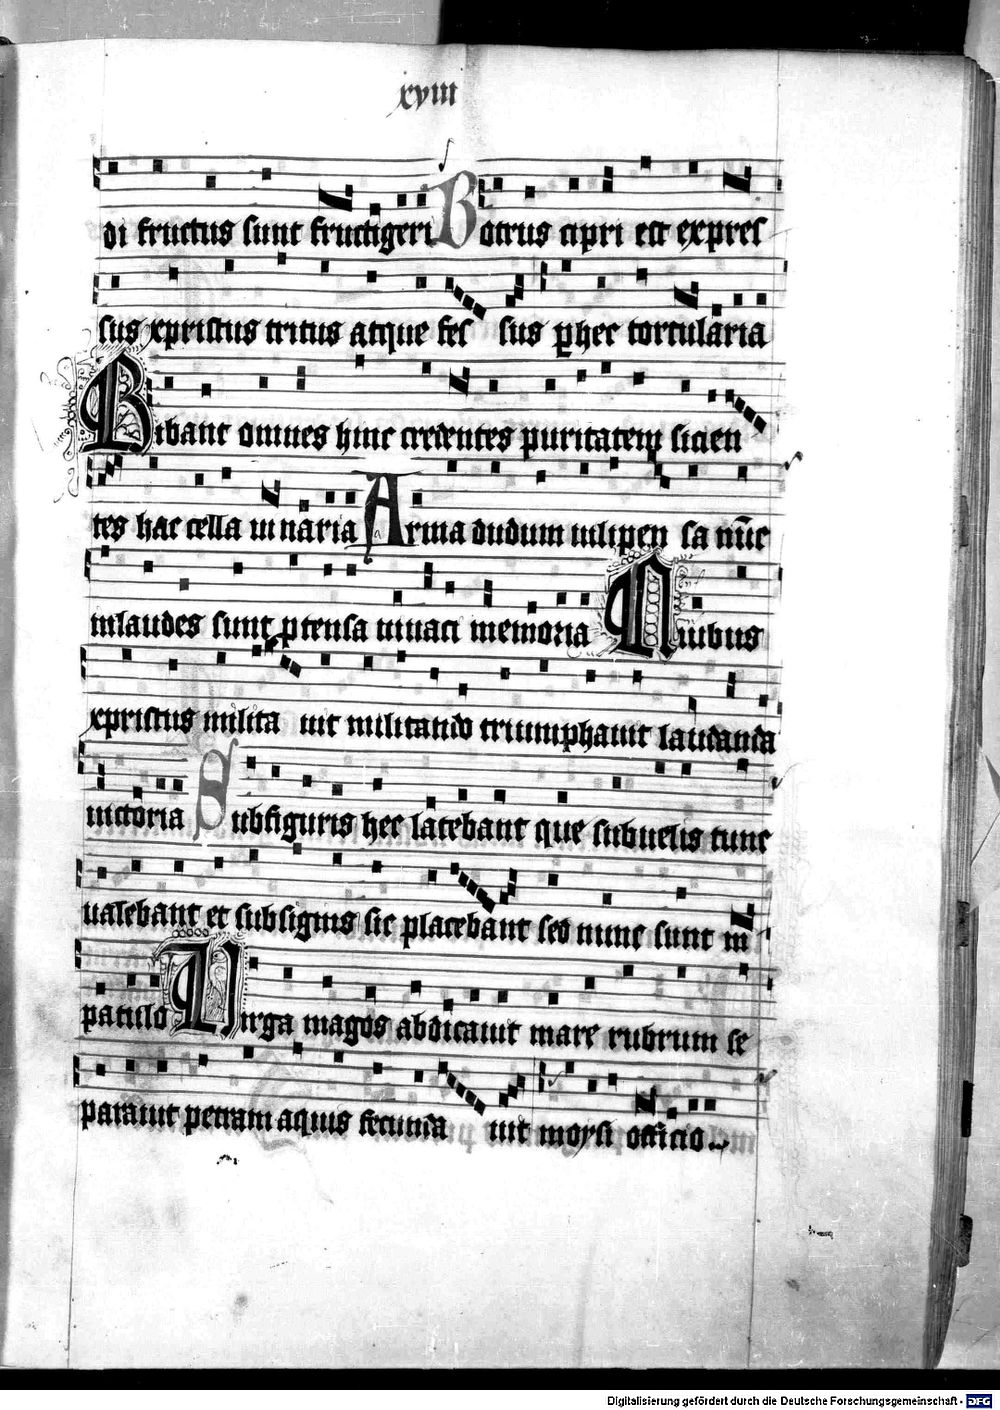 xviii
di fructus sunt fructigeri Botrus cipri est expres
sus xpristus tritus atque fes sus p hec torcularia
Bibant omnes hinc credentes puritatem sicien
tes hac cella vinaria Arma dudum in lipen sa nūc
inlaudes sunt ptensa vivaci memoria Quibus
xpristus milita vit militando triumphavit laudanda
victoria Subfiguris hec latebant que subvelis tunc
valebant et subsignis sic placebant sed nunc sunt in
patulo Virga magos abdicavit mare rubrum se
paravit petram aquis fecunda vit moysi officio
Digitalisierung gefördert durch die Deutsche Forschungsgemeinschaft - DFG